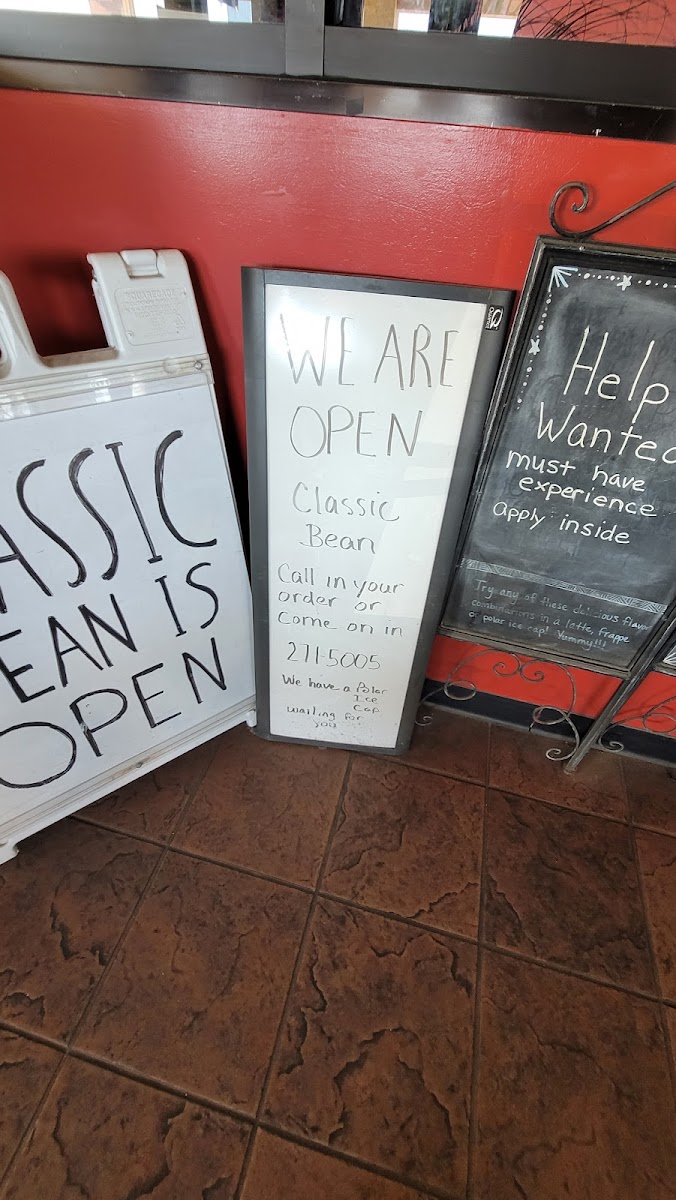 ASSIC
EAN IS
OPEN
WE ARE
OPEN
Classic
Bean
Call in your
order or
Come on in
271-5005
We have a Polar
Ice
Cap
waiting for
you
Help
Wanted
must have
experience
apply inside
Try any of these delicious flavor
combinations in a latte, frappe
or polar ice cap! Yummy!!!